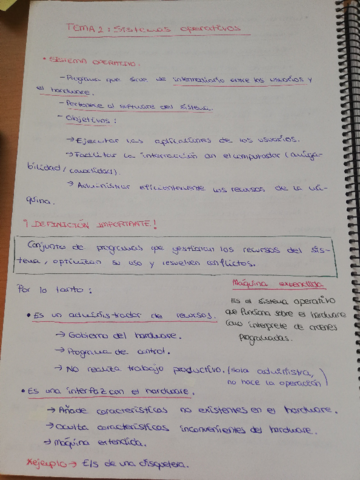 TEMA 2: Sistemas operativos
• SISTEMA OPERATIVO.
- Programa que sirve de intermediario entre los usuarios y
el hardware.
- Pertenece al software del sistema
- Objetivos:
→ Ejecutar las aplicaciones de los usuarios.
→ Facilitar la interacción con el computador (amiga-
bilidad/comodidad)
→ Administrar eficientemente los recursos de la má-
quina.
¡DEFINICIÓN IMPORTANTE!
Conjunto de programas que gestionan los recursos del sis-
tema, optimizan su uso y resuelven conflictos.
Por lo tanto:
• Es un administrador de recursos.
→ Gobierno del hardware.
→ Programa de control.
→ No realiza trabajo productivo. (solo administra,
no hace la operación)
Máquina extendida
Es el sistema operativo
que funciona sobre el hardware
como interprete de ordenes
programadas.
• Es una interfaz con el hardware.
→ Añade características no existentes en el hardware.
→ Oculta características inconvenientes del hardware.
→ Máquina extendida.
*ejemplo → E/S de una disquetera.